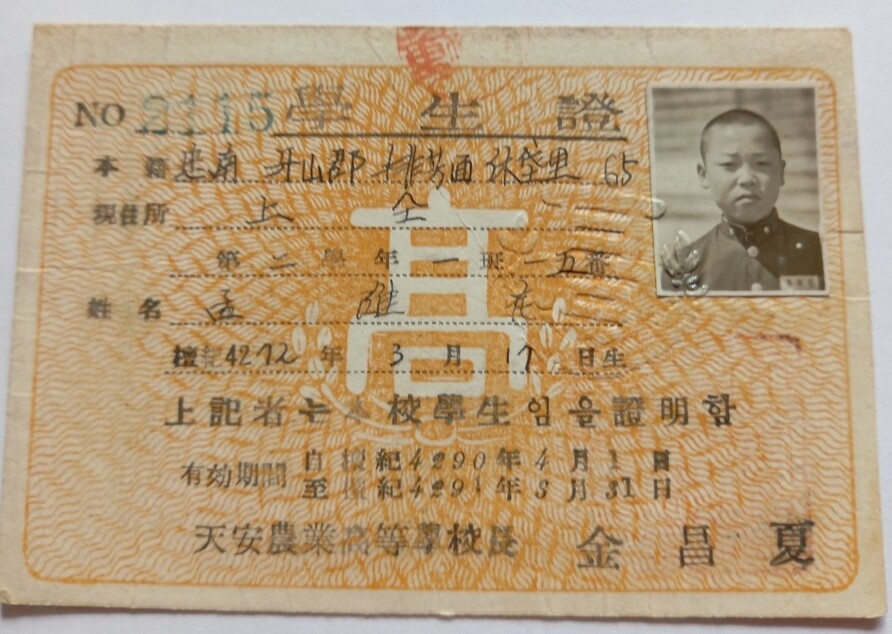 NO 2115 學生證
本籍 忠南 牙山郡 排芳面 休垈里 65
現住所 上 仝
第二學年一班一五番
姓名 孟 雄
檀紀4272年 3月 17日生
上記者는 本校學生임을證明함
有効期間 自檀紀4290年4月1日
至檀紀4291年3月31日
天安農業高等學校長 金昌夏
高